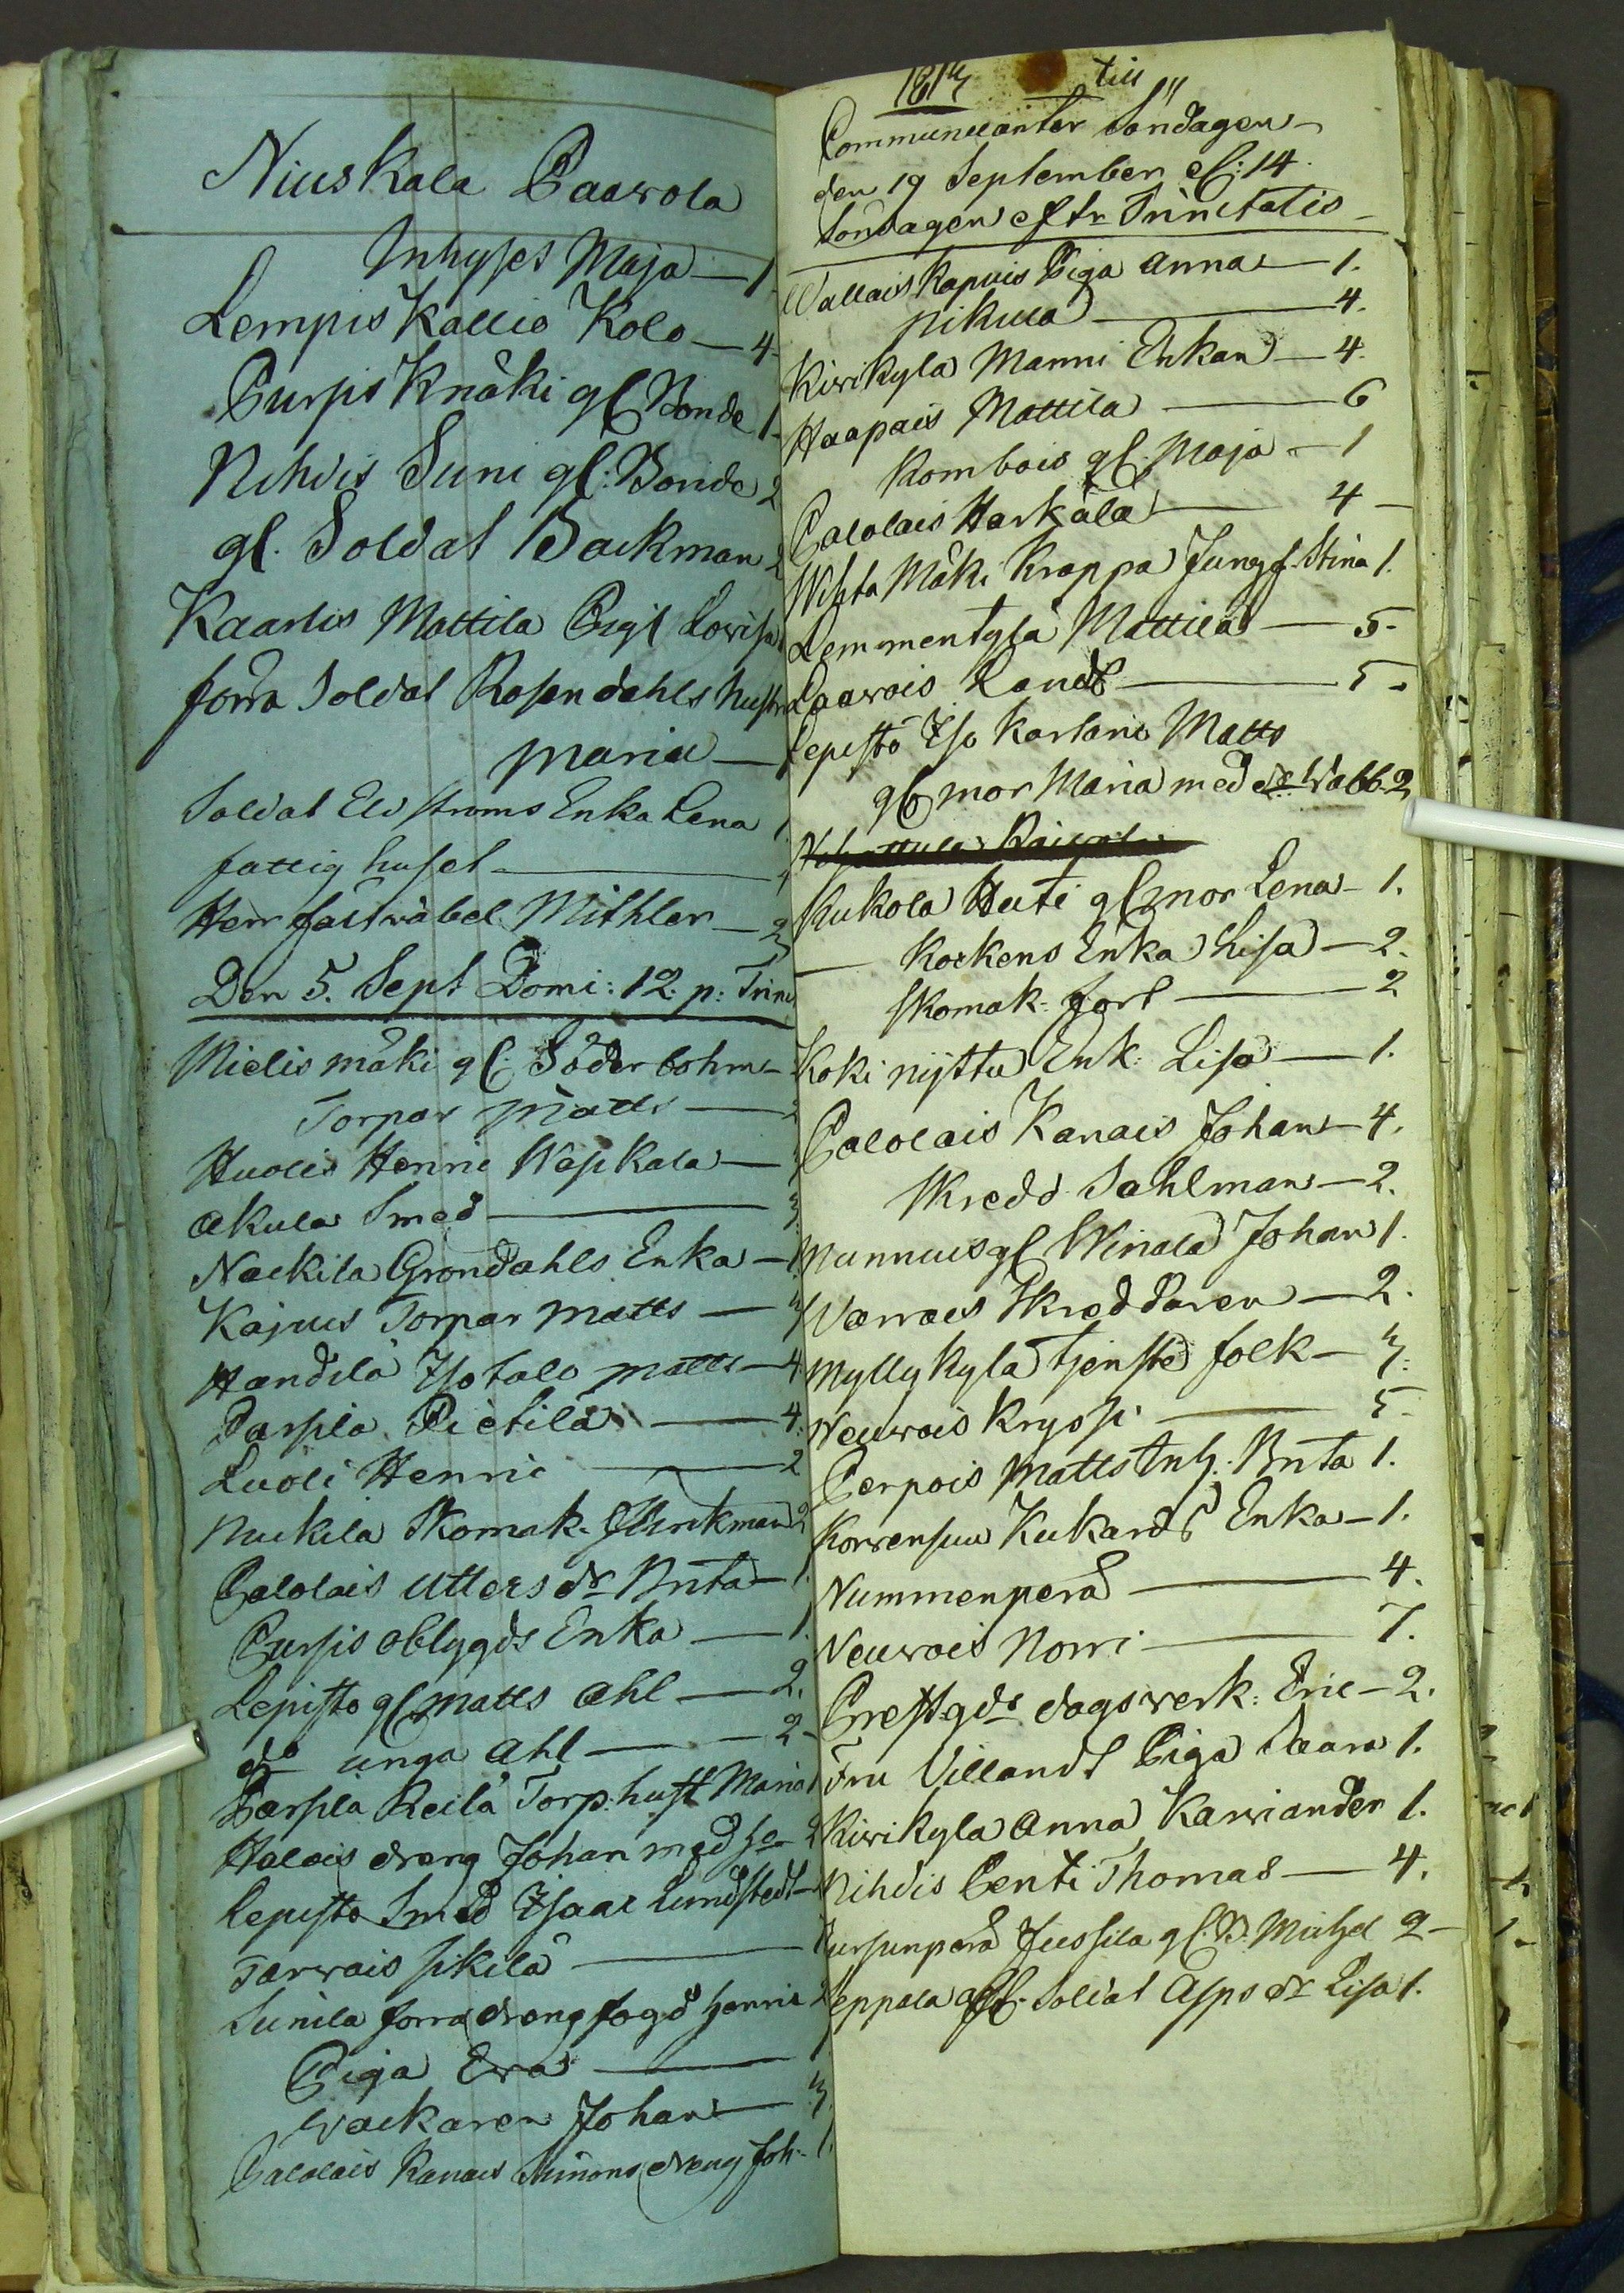 Niuskala Paavola
Inhyses Maja — 1
Lempis Kallio Kolo — 4
Purpis Knäki gl Bonde 1
Nihdis Suni gl: Bonde 2
gl. Soldat Backman 2
Kaarlis Mattila Pigl Lovisa
förra Soldat Rosendahls hustru
Maria —
Soldat Elvstroms Enka Lena 1
fattig huset — 1
Herr fältväbel Mithler — 3
Den 5. Sept Domi: 12. p: Trini
Mielismäki gl: Söderbohm —
Torpar Matts — 2
Huolis Henni Wäskala —
Akula Smed — 3
Nackila Grondahls Enka — 1
Kajuus Torpar Matts — 3
Handila Iso talo Matts — 4.
Parsila Pietilä — 4.
Luoli Henric — 2
Nuckila Skomak. Flinkman 2
Palolais Utters dr Brita — 1.
Pursis oblygds Enka — 1.
Lepisto gl Matts Ahl — 2.
do unga Ahl — 2-
Parsila Reila Torp: hust Maria 1
Halois dreng Johan med h:o 2
Lepisto Smed Isaac Lundstedt —
Tarvais sikilä —
Sunila förra drengfogd Henric 2
Piga Eva — 1
Wackaren Johan — 3.
Palolais Kanais Simons dreng Joh. 1.
1813 till
Communicanter Söndagen
den 19 September el: 14
Söndagen eftr Trinitatis
Wallais Kapuis Piga Anna — 1.
pikula — 4.
Kirikyla Manni Enkan — 4.
Haapais Mattila — 6
Kombois gl: Maja — 1
Palolais Harkäla — 4 —
Wihta Mäki Krappa Jungf. Stina 1.
Lemmentylä Mattila — 5.
Laavois Landt — 5 -
Lepistö Iso Karlano Matts
gl mor Maria med dr Walb. 2
Kukola Huti gl mor Lena — 1.
— Kockens Enka Lisa — 2.
Skomak: fort — 2
Koki nijttu Enk: Lisa — 1.
Palolais Kanais Johan — 4.
Skredd Sahlman — 2.
Nunnuis gl Winala Johan 1.
Varrais Skreddaren — 2.
Myllykyla tjenste folk — 3.
Neuvois Kryssi — 5
Perpois Matts Inh: Brita 1.
Korvensuu Kukards Enka — 1.
Nummenperä — 4.
Neuvois Norri — 7.
Prestgds dagsverk: Eric — 2.
Fru Villandt Piga Saara 1.
Kirikyla Anna Karviander 1.
Nihdis Penti Thomas — 4.
Pursunperä Jussila gl: B. Michel 2 —
Seppala gl: Soldat Asps dr Lisa 1.